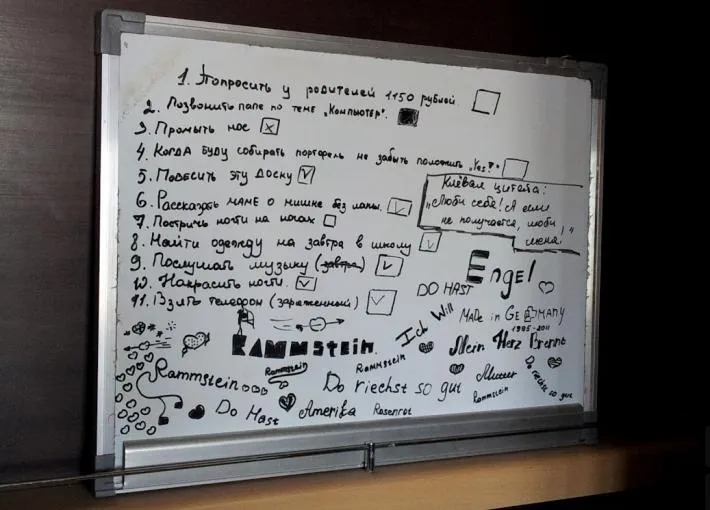 1. Попросить у родителей 1150 рублей.
2. Позвонить папе по теме „Компьютер".
3. Промыть нос
4. Когда буду собирать портфель не забыть положить „Yes!"
5. Повесить эту доску
6. Рассказать маме о мишке без лапы.
7. Постричь ногти на ногах
8. Найти одежду на завтра в школу
9. Послушать музыку (завтра)
10. Накрасить ногти.
11. Взять телефон (заряженный)
Клёвая цитата:
„Люби себя! А если
не получается, люби
меня!"
Engel
DO HAST
MADE in GERMANY
1995-2011
Ich Will
RAMMstein.
Mein Herz Brennt
Rammstein
Rammstein
Rammstein
Do riechst so gut
Mutter
Rammstein
Do riechst so gut
Do Hast
Amerika
Rosenrot